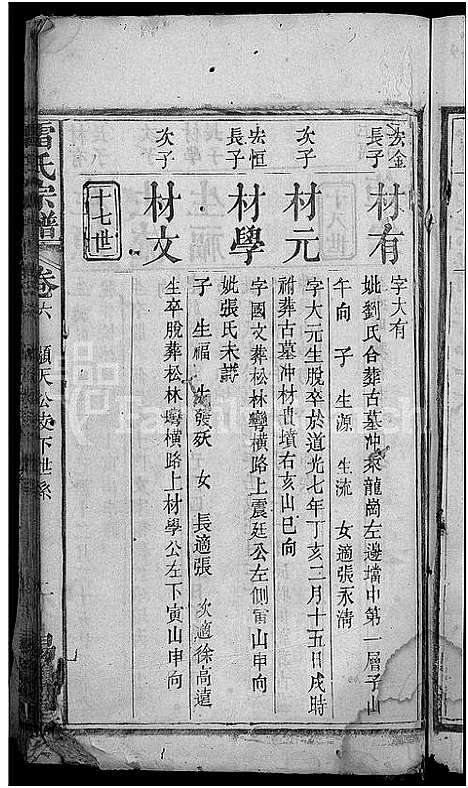 宏金
長子
材有
字大有
妣劉氏合葬古墓冲來龍崗左邊壋中第一層子山
午向 子 生源 生流 女適張永清
次子
材元
字大元生脫卒於道光七年丁亥二月十五日戌時
祔葬古墓冲材貴墳右亥山巳向
宏恒
長子
材學
字國文葬松林灣橫路上震廷公左側寅山申向
妣張氏未歿
子 生福 生發殀 女 長適張 次適徐高遠
次子
材文
生卒脫葬松林灣橫路上材學公左下寅山申向
十七世
雷氏宗譜
卷六
順天公支下世系